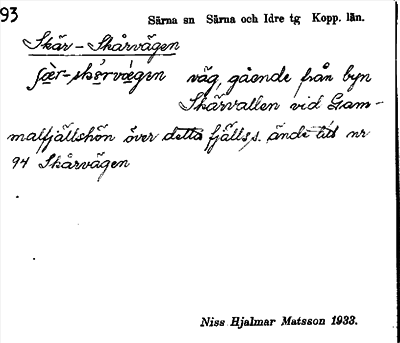 93
Särna sn Särna och Idre tg Kopp. län.
Skär-Skårvägen
väg, gående från byn
Skärvallen vid Gam-
malfjällshön över detta fjälls s. ände till nr
94 Skårvägen
Niss Hjalmar Matsson 1933.